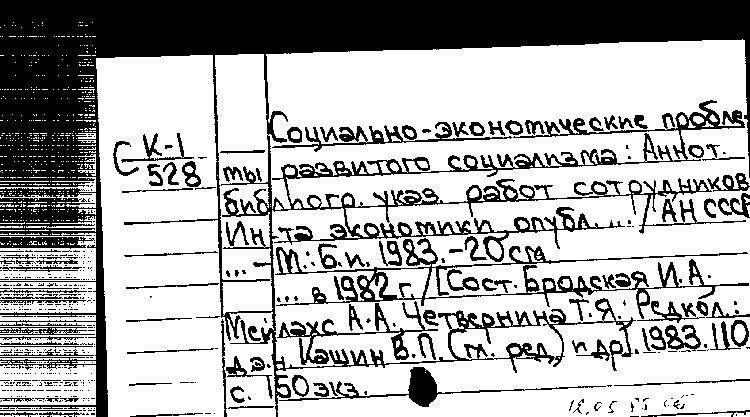 Социально-экономические пробле-
С К-1
528
мы развитого социализма: Аннот.
библиогр. указ. работ сотрудников
Ин-та экономики, опубл. ... / АН СССР
... - М.: Б.и., 1983. - 20 см.
... в 1982 г. / [Сост. Бродская И.А.
Мейлахс А.А., Четвернина Т.Я.; Редкол.:
д.э.н. Кашин В.П. (гл. ред.) и др]. 1983. 110
с. 150 экз.